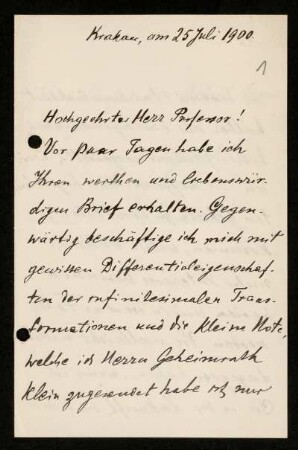 Krakau, am 25 Juli 1900.
1
Hochgeehrter Herr Professor!
Vor paar Tagen habe ich
Ihren werthen und liebenswür-
digen Brief erhalten. Gegen-
wärtig beschäftige ich mich mit
gewissen Differentialeigenschaf-
ten der infinitesimalen Trans-
formationen und die kleine Note,
welche ich Herrn Geheimrath
Klein zugesendet habe ist nur